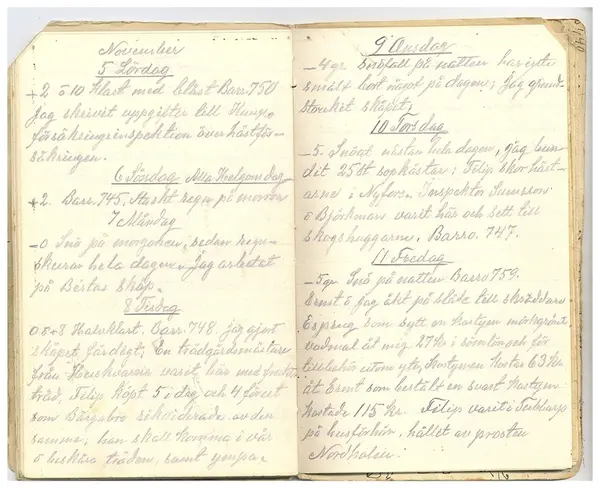 November
5 Lördag
+2 ö 10 Klart med blåst Barr. 750
Jag skrivit uppgifter till Kungo
försäkringsinspektion över hästför-
säkringen.
6 Söndag Alla Helgons dag
+2. Barr. 745, Starkt regn på morron
7 Måndag
-0 Snö på morgonen, sedan regn-
skurar hela dagen. Jag arbetat
på Bertas skåp.
8 Tisdag
0 o +8 Halvklart. Barr. 748. jag gjort
skåpet färdigt; En trädgårdsmästare
från varit här med frukt-
träd, Filip köpt 5 i dag och 4 förut
som Bärgabro rekvirerade av den
samme; han skall komma i vår
o beskära träden, samt ympa.
9 Onsdag
-4 gr Snöfall på natten har inte
smält bort något på dagen; Jag grund-
strukit skåpet;
10 Torsdag
-5. Snögt nästan hela dagen, jag bun-
dit 25 st sopkvastar; Filip skor häst-
arne i Nyfors. Inspektor
o Björkman varit här och sett till
skogshuggarne. Barro. 747.
11 Fredag
-5 gr Snö på natten Barro 759.
Ernst o jag åkt på släde till skräddare
Esping som sytt en kostym mörkgrönt
vadmal åt mig 27 Kr i sömlön och för
tillbehör utom yta, Kostymen kostar 63 Kr.
åt Ernst som beställt en svart Kostym.
Kostade 115 Kr. Filip varit i
på husförhör, hållet av prosten
Nordholm.